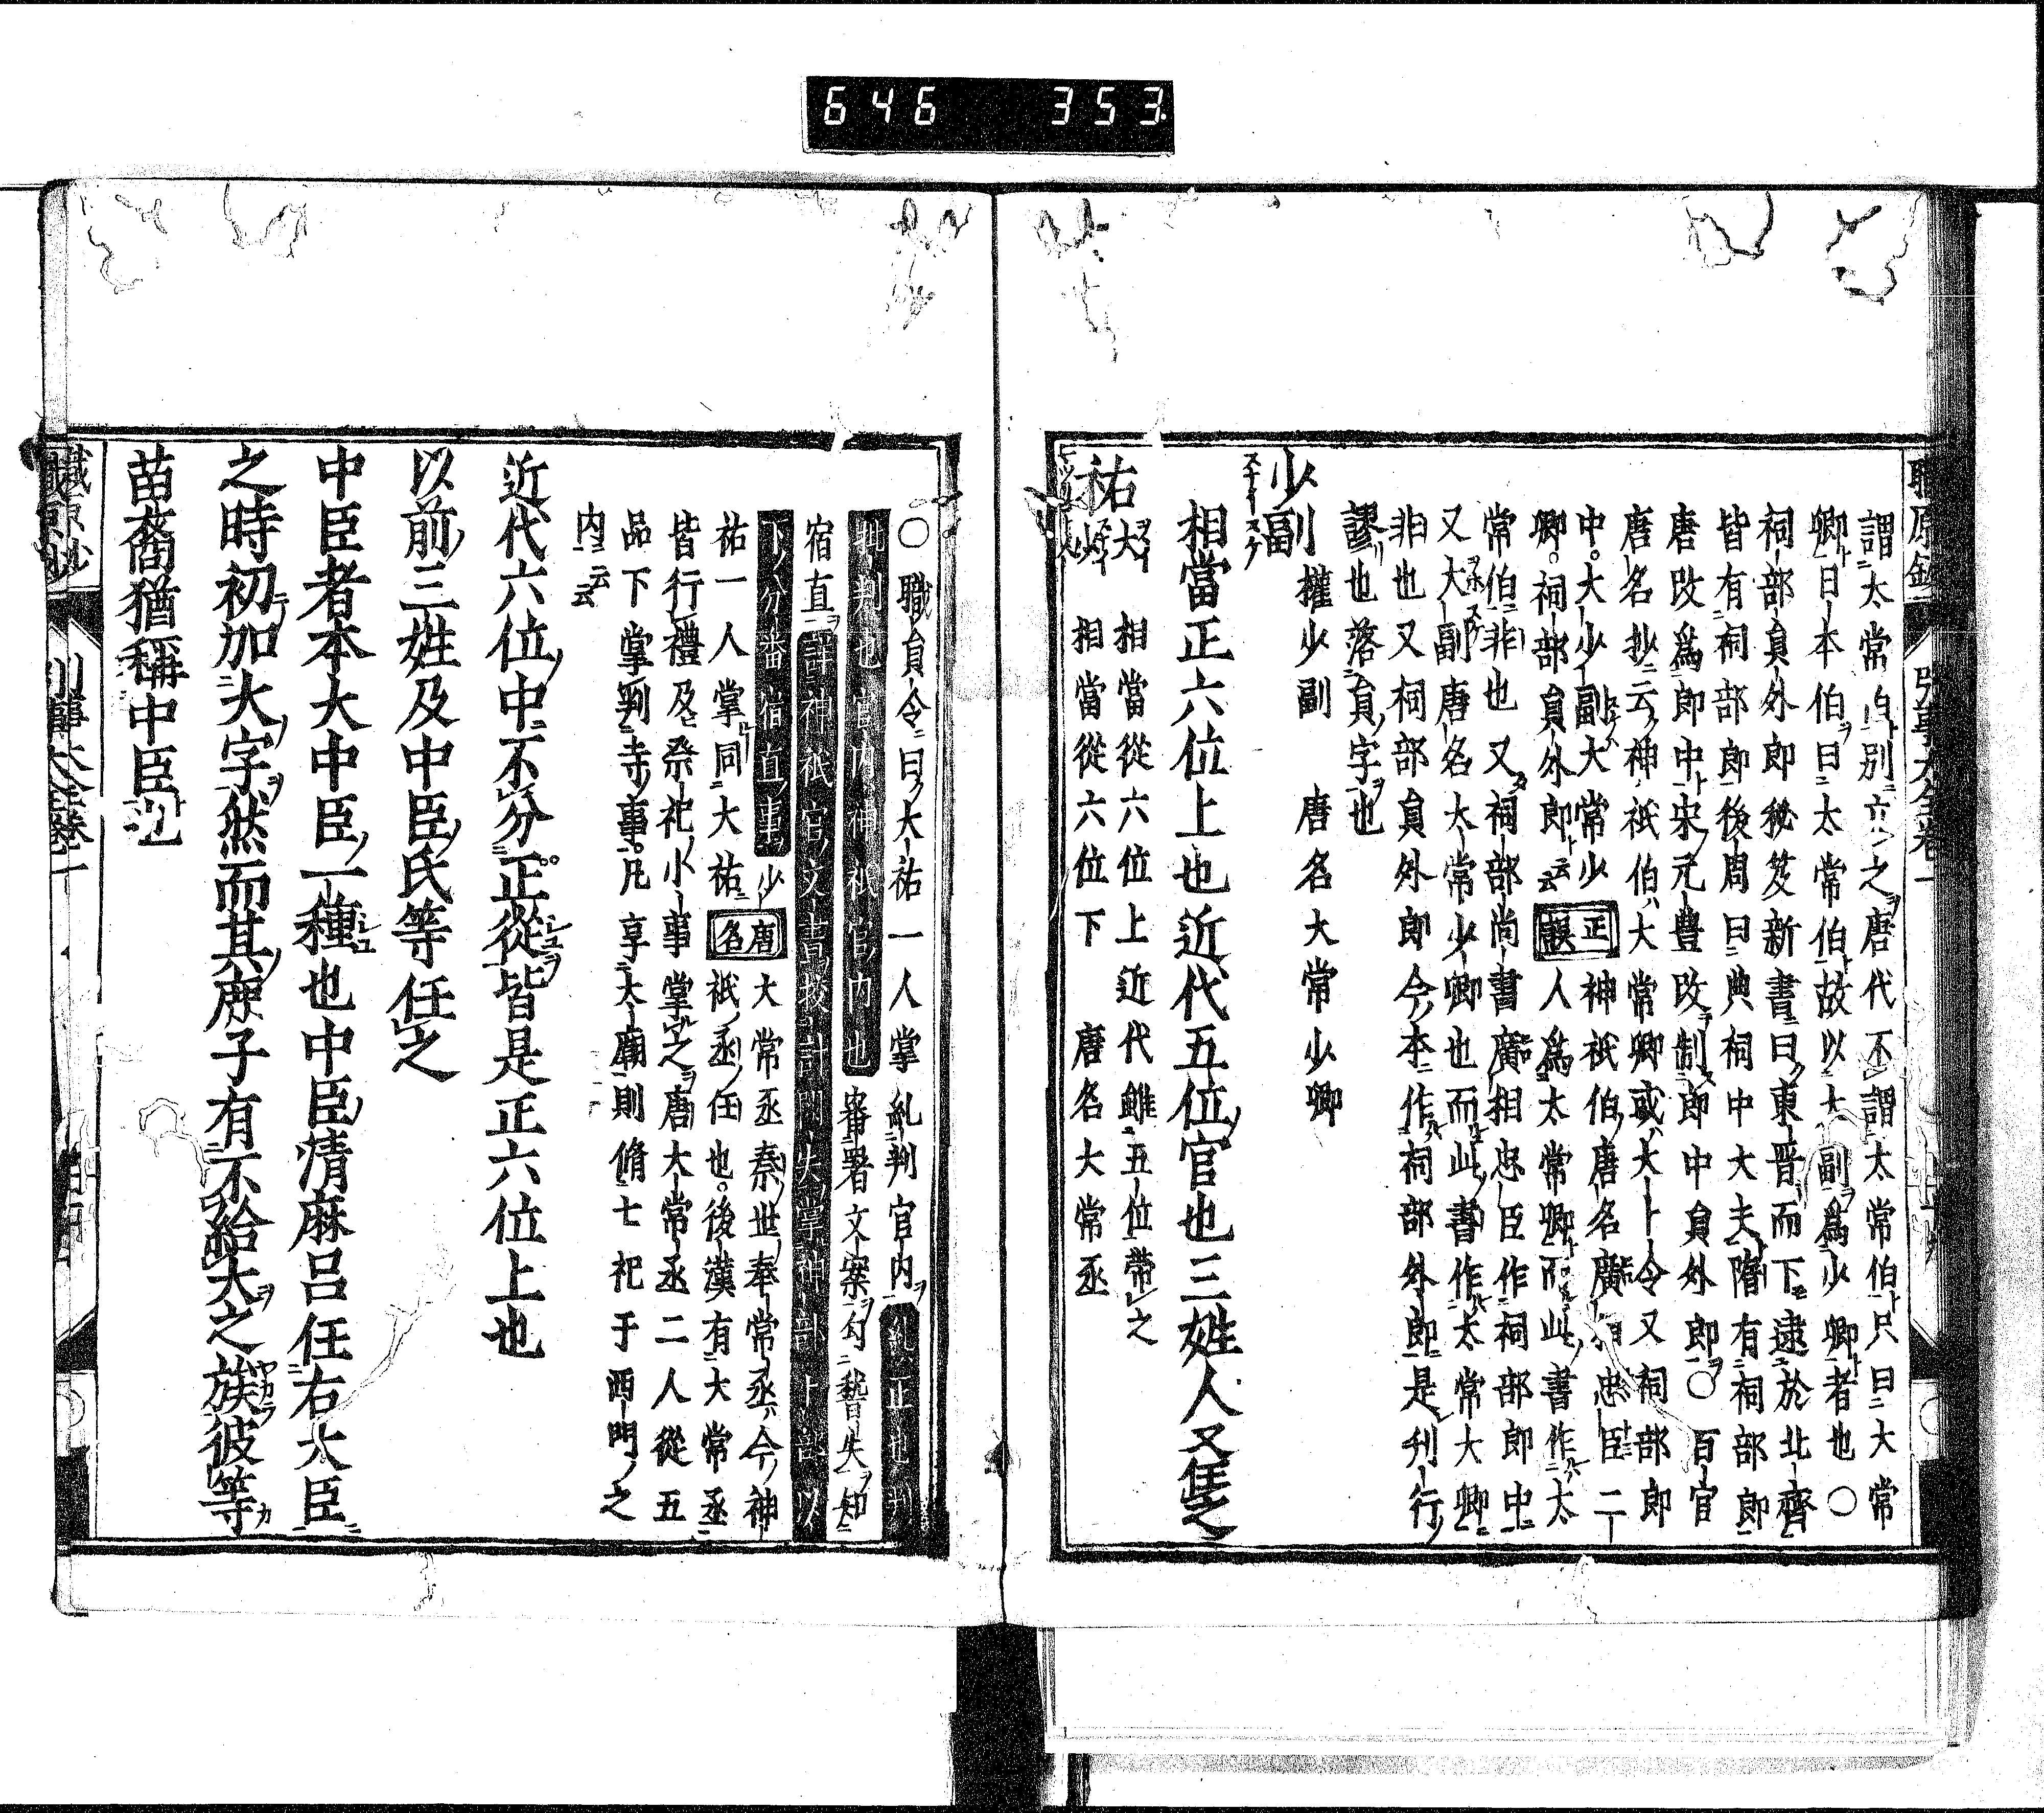 646 353
謂太常伯別立之唐代不謂太常伯只曰大常
卿日本伯曰太常伯故以大副爲少卿者也〇
祠部員外郎秘笈新書曰東晋而下逮於北齊
皆有祠部郎後周曰典祠中大夫隋有祠部郎
唐改爲郎中宋元豊改制郎中員外郎〇百官
唐名抄云神祇伯大常卿或大卜令又祠部郎
中大少副大常少
卿祠部員外郎云云
正誤
神祇伯唐名廣相忠臣二
人爲太常卿而此書作太
常伯非也又祠部尚書廣相忠臣作祠部郎中
又大副唐名大常少卿也而此書作太常大卿
非也又祠部員外郎今本作祠部外郎是刊行
謬也落員字也
少副 權少副 唐名大常少卿
相當正六位上也近代五位官也三姓人又任之
祐 大 相當從六位上近代雖五位帶之
少 相當從六位下 唐名大常丞
〇職員令曰大祐一人掌糺判官内糺正也判
判也官内神祇官内也審署文案勾稽失知
宿直許神祇官文書授計失掌神部卜部以
下分番宿直事少
祐一人掌同大祐
唐名
大常丞秦世奉常丞今神
祇丞任也後漢有大常丞
皆行禮及祭祀小事掌之唐大常丞二人從五
品下掌判寺事凡享太廟則脩七祀于西門之
内云云
近代六位中不分正從皆是正六位上也
以前三姓及中臣氏等任之
中臣者本大中臣一種也中臣清麻呂任右大臣
之時初加大字然而其庶子有不給大之族彼等
苗裔猶稱中臣也